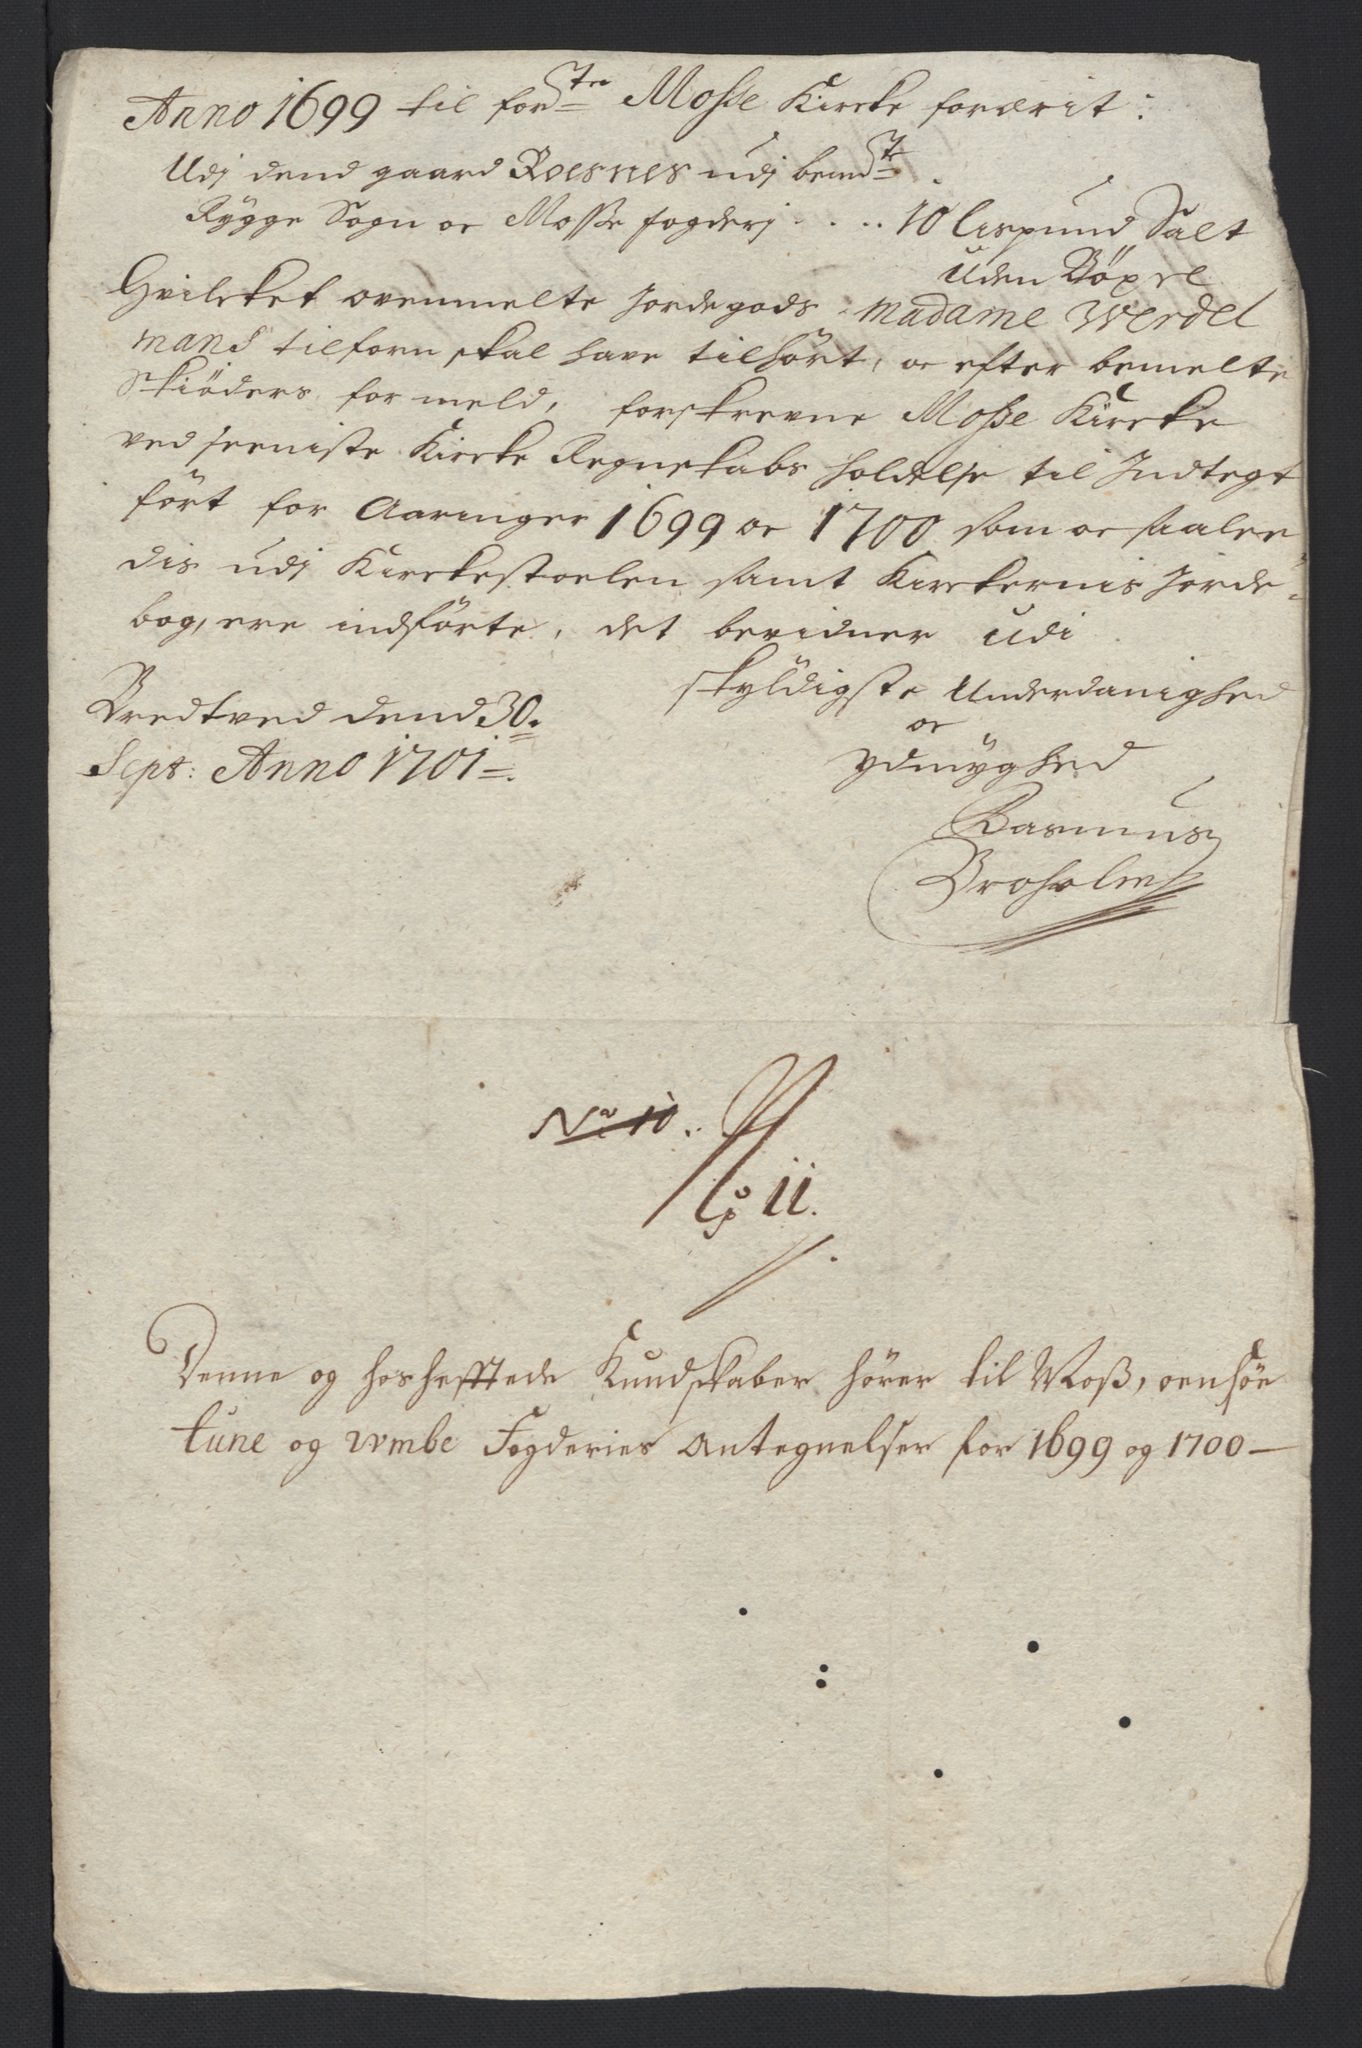 Anno 1699 til for.te Mosse Kircke foruerit:
Udj dend gaard Roesnes udj bemd.te
Rygge Sogn oc Mosse fogderj . . . . 10 Lispund Salt
uden Böxel
Hvilcket ovenmelte Jordegods Madame Werdel
mand tilforn skal have tilhört, oc efter bemelte
Skiöders formeld, forskrevne Mosse Kircke
ved seeniste Kircke Regnskabs holdelse til Indtegt
fört for Aaringer 1699 oc 1700 som oc saalee
dis udj Kirckestoelen samt Kirckernis Jorde-
bog, ere indförte, det bevidner udi
skyldigste Underdanighed
oc
ydmyghed
Bredtved dend 30.
Sept: Anno 1701.
Rasmus
Broholm
No 10.
No 11.
Denne og hoshefftede Kundskaber hörer til Moss, oensöe
tune og wembe Fogderies Antegnelser for 1699 og 1700